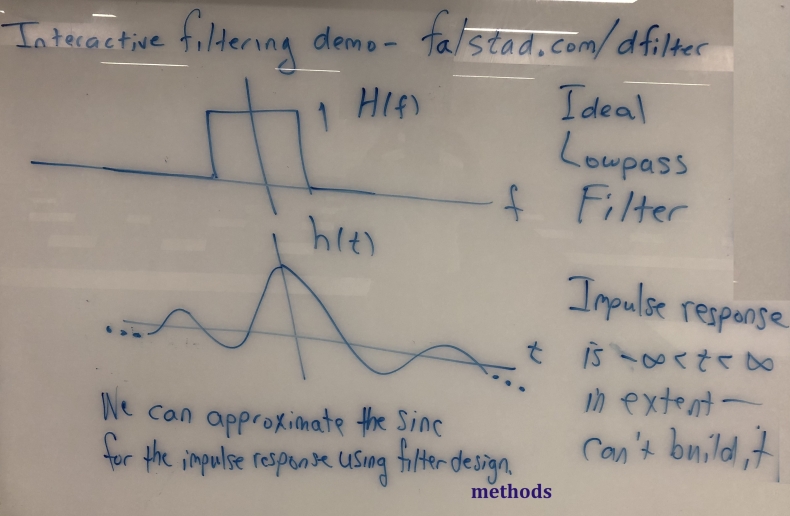 Interactive filtering demo- falstad.com/dfilter
1 H(f)
Ideal
Lowpass
Filter
f
h(t)
Impulse response
is -∞<t<∞
in extent—
can't build it
t
...
...
We can approximate the sinc
for the impulse response using filter design.
methods